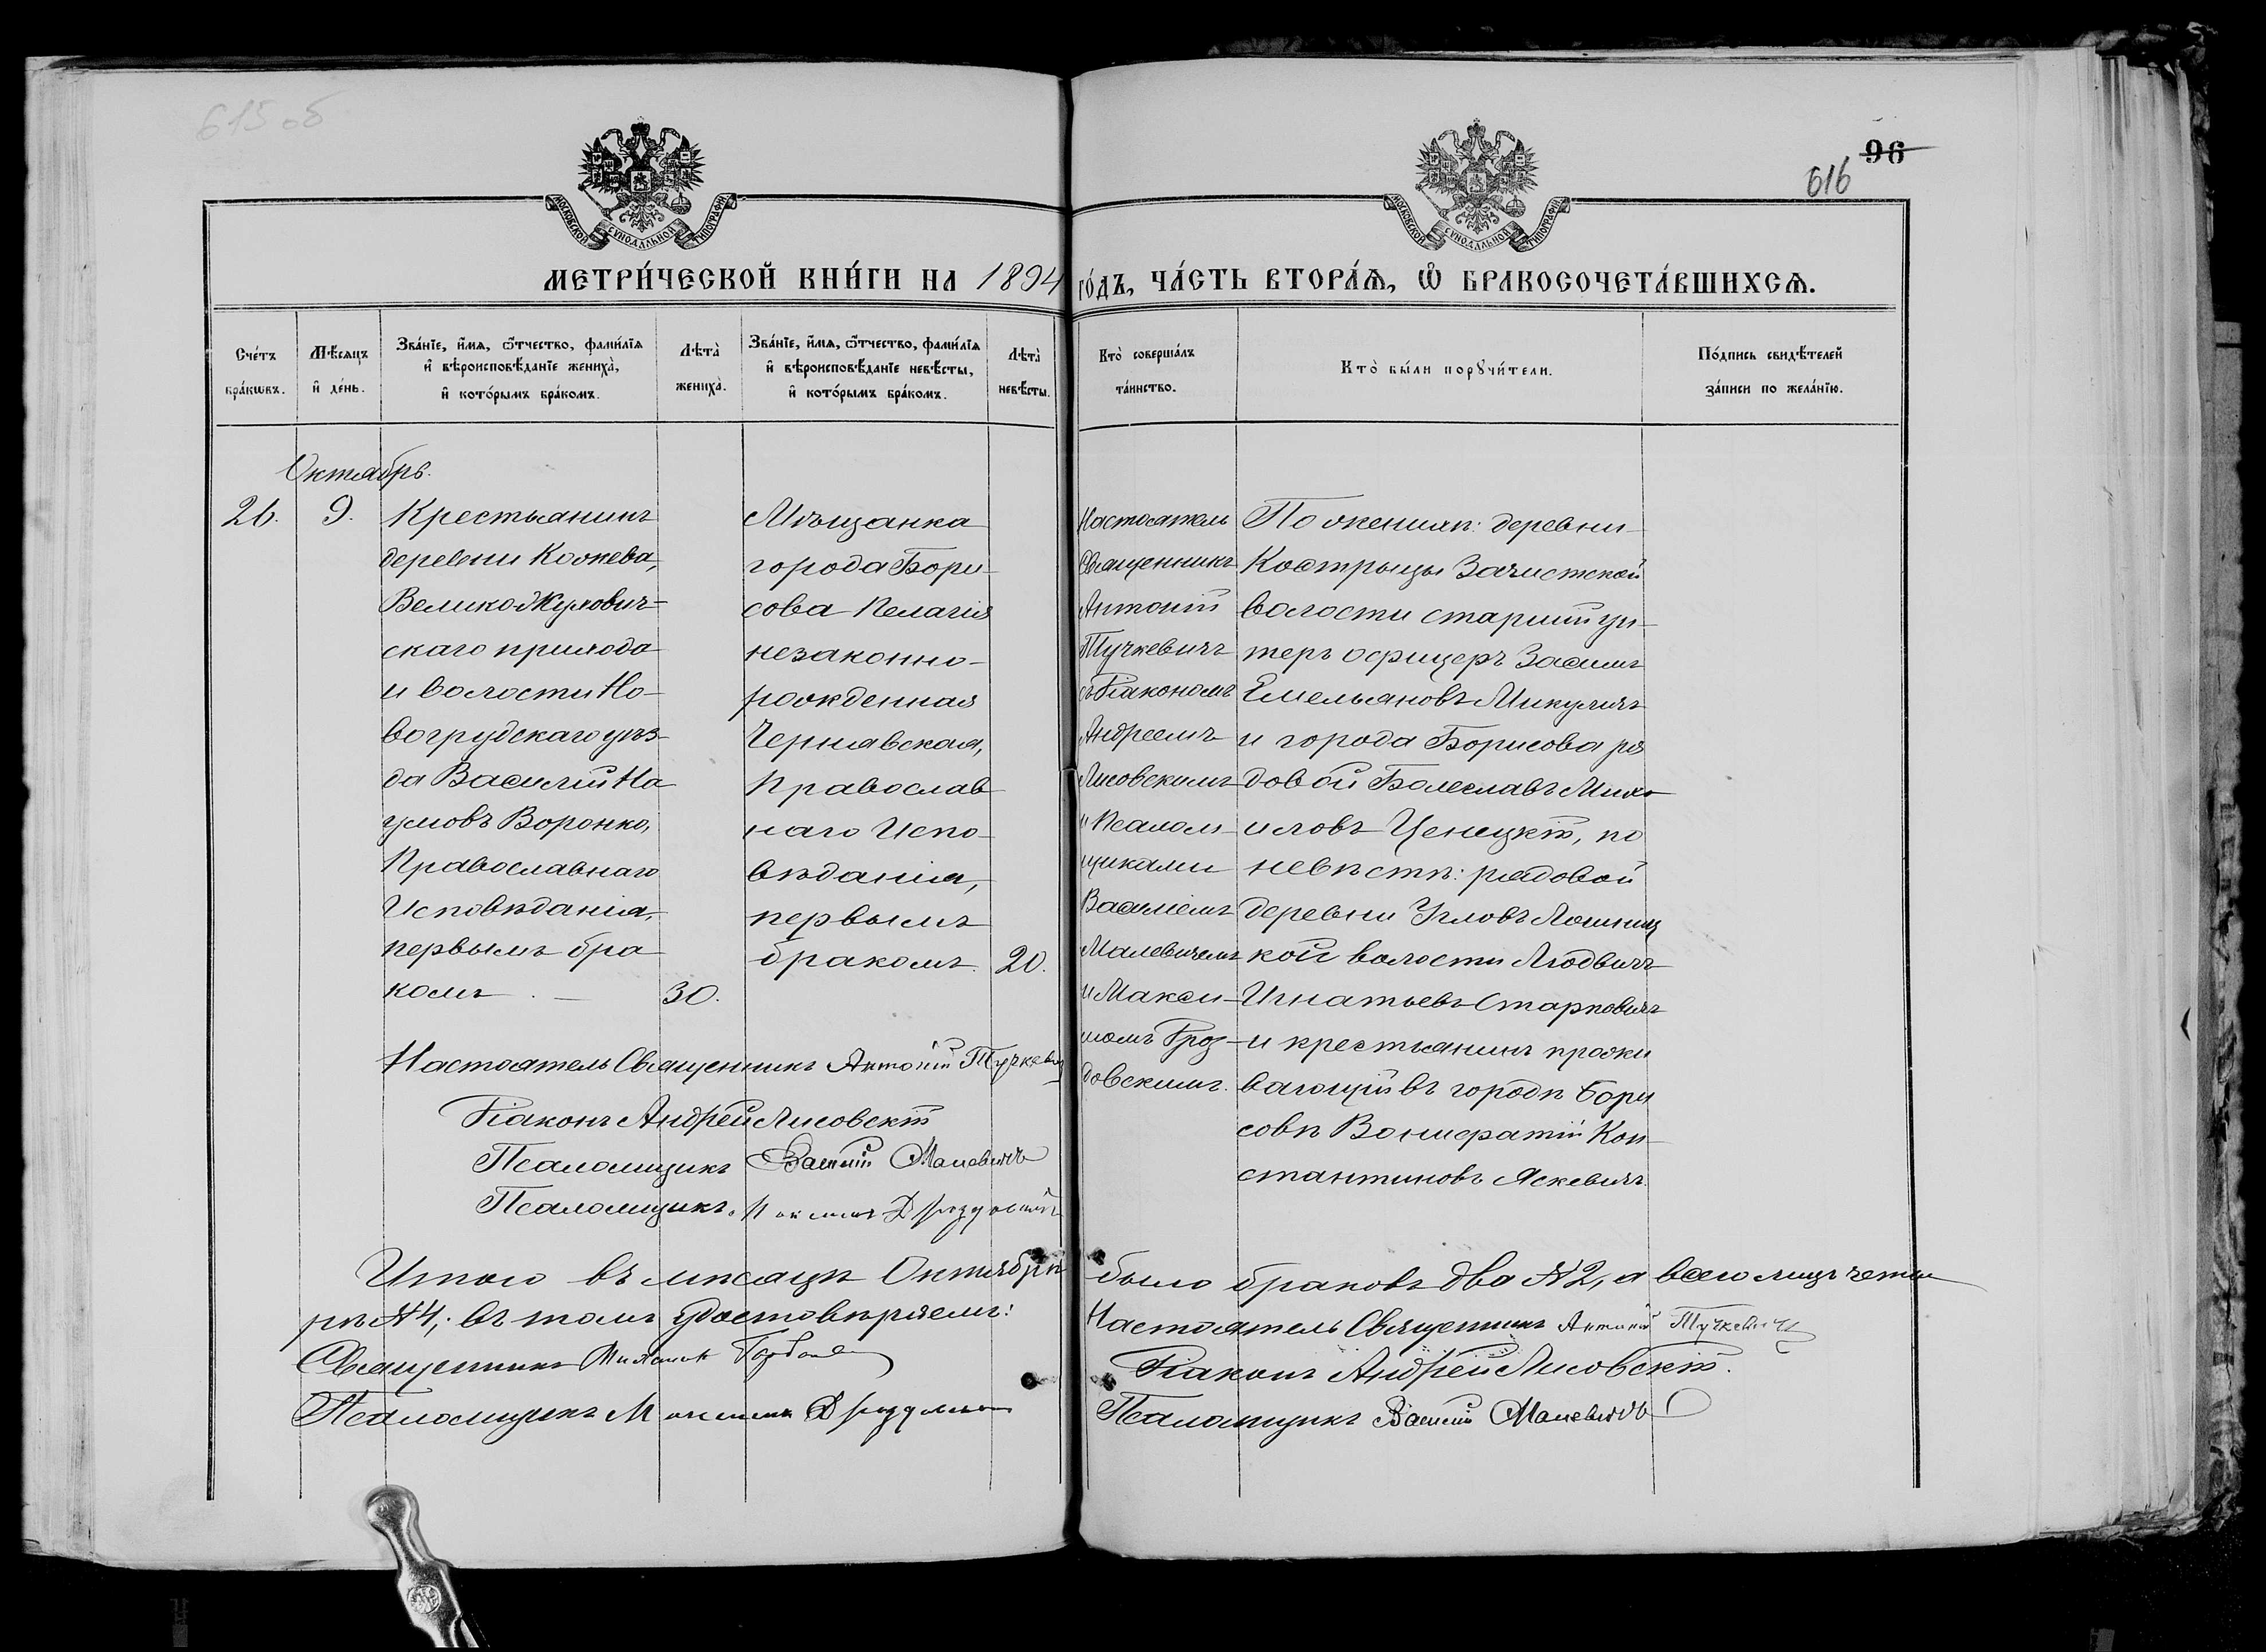 615 об
96
616
МОСКОВСКОЙ СУНОДАЛЬНОЙ ТИПОГРАФІИ
МОСКОВСКОЙ СУНОДАЛЬНОЙ ТИПОГРАФІИ
МЕТРИ́ЧЕСКОЙ КНИ́ГИ НА 1894 ГО́ДЪ, ЧА́СТЬ ВТОРА́Ѧ, Ѡ҆ БРАКОСОЧЕТА́ВШИХСѦ.
Сче́тъ бра́кѡвъ.
Мѣ́сѧцъ и҆ де́нь.
Зва́нїе, и҆́мѧ, ѻ҆́тчество, фами́лїѧ и҆ вѣроисповѣ́данїе жениха̀, и҆ кото́рымъ бра́комъ.
Лѣта̀ жениха̀.
Зва́нїе, и҆́мѧ, ѻ҆́тчество, фами́лїѧ и҆ вѣроисповѣ́данїе невѣ́сты, и҆ кото́рымъ бра́комъ.
Лѣта̀ невѣ́сты.
Кто̀ соверша́лъ та́инство.
Кто̀ бы́ли порꙋчи́тели.
По́дпись свидѣ́телей за́писи по жела́нїю.
Октябрь.
26.
9.
Крестьянинъ
деревни Кожева,
Велико-Жухович-
скаго прихода
и волости Но-
вогрудскаго уѣз-
да Василій На
умовъ Воронко,
Православнаго
Исповѣданія,
первымъ бра
комъ
30.
Мѣщанка
города Бори-
сова Пелагія
незаконно-
рожденная
Чернявская,
Православ
наго Испо-
вѣданія,
первымъ
бракомъ.
20.
Настоятель
Священникъ
Антоній
Тучкевичъ
съ Діакономъ
Андреемъ
Лисовскимъ
и Псалом-
щиками
Василіемъ
Малевичемъ
и Макси-
момъ Дроз-
довскимъ.
По женихѣ: деревни
Кострицы Зачистской
волости старшій ун-
теръ офицеръ Засимъ
Емельяновъ Микуличъ
и города Борисова ря
довой Болеславъ Миха
иловъ Ценецкій, по
невѣстѣ: рядовой
деревни Угловъ Лошниц
кой волости Людвигъ
Игнатьевъ Старковичъ
и крестьянинъ прожи
вающій въ городѣ Бори
совѣ Вонифатій Кон-
стантиновъ Яскевичъ.
Настоятель Священникъ Антоній Тучкевичъ
Діаконъ Андрей Лисовскій
Псаломщикъ Василій Малевичъ
Псаломщикъ Максимъ Дроздовскій
Итого въ мѣсяцѣ Октябрѣ было браковъ два № 2, а всего лицъ четы
ре № 4, въ томъ удостовѣряемъ:
Настоятель Священникъ Антоній Тучкевичъ
Священникъ Михаилъ
Діаконъ Андрей Лисовскій.
Псаломщикъ Максимъ Дроздовскій
Псаломщикъ Василій Малевичъ